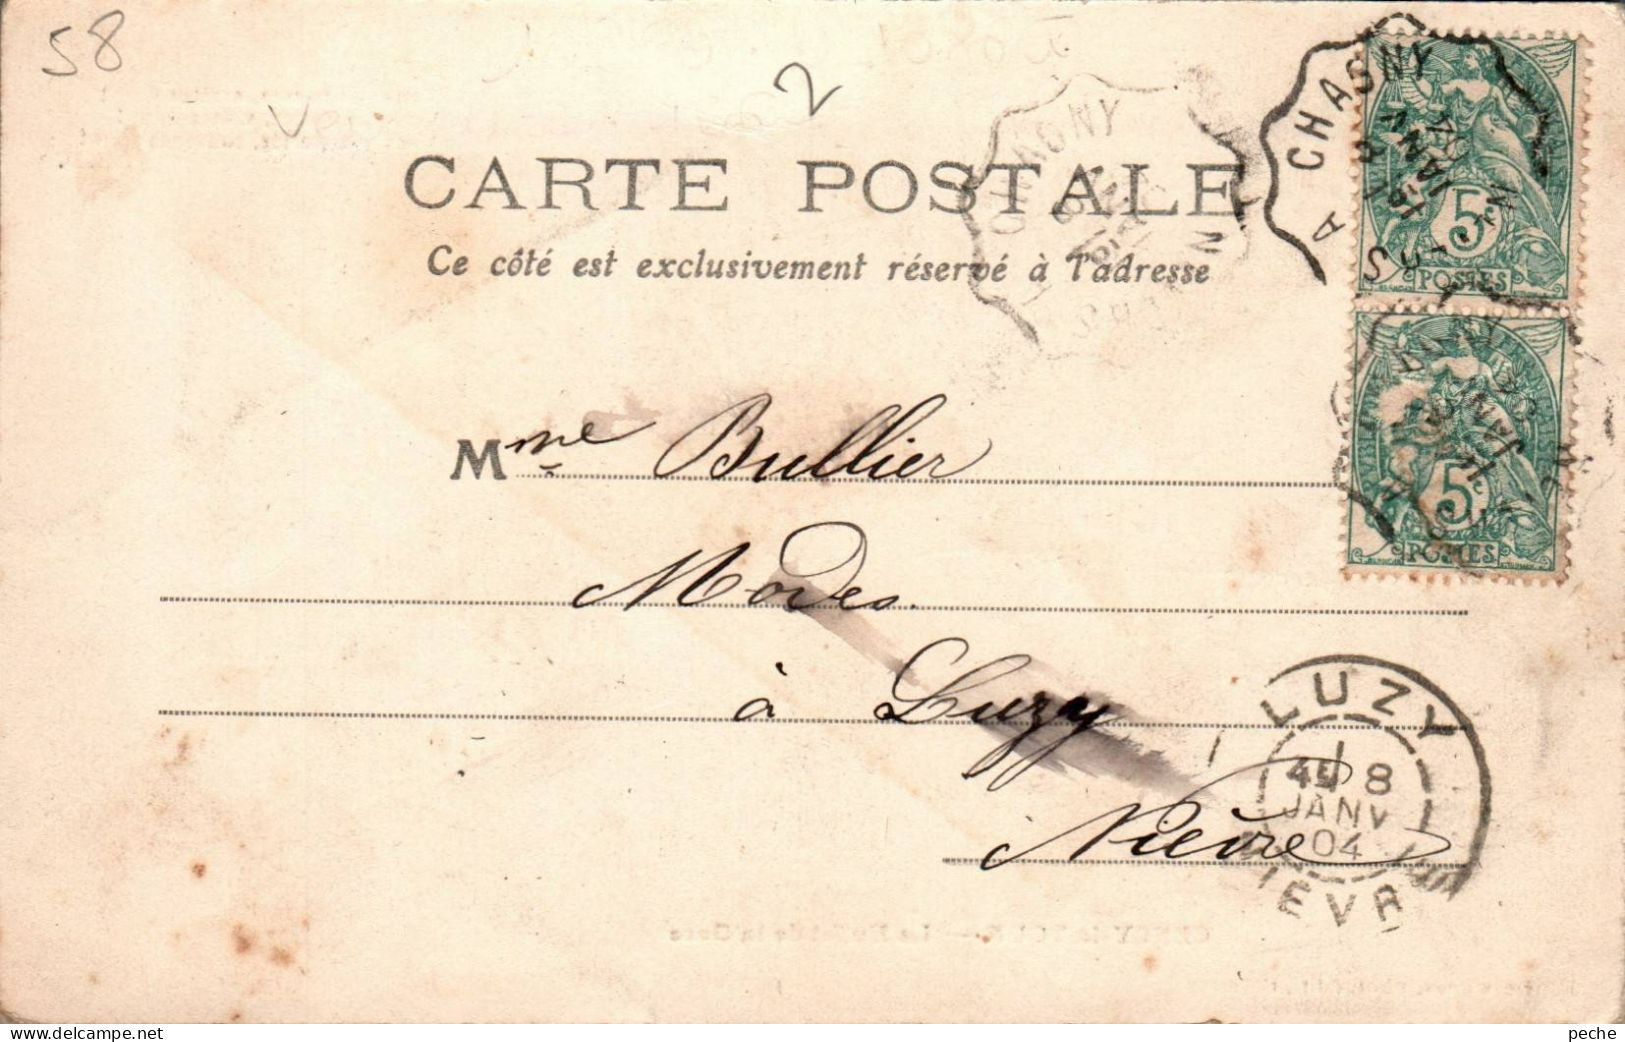 58
2
CARTE POSTALE
Ce côté est exclusivement réservé à l'adresse
Mme Bullier
Modes
à Luzy
Nièvre
A CHAGNY
JANV
5c
POSTES
5c
POSTES
CHAGNY
LUZY
8
JANV
04
peche